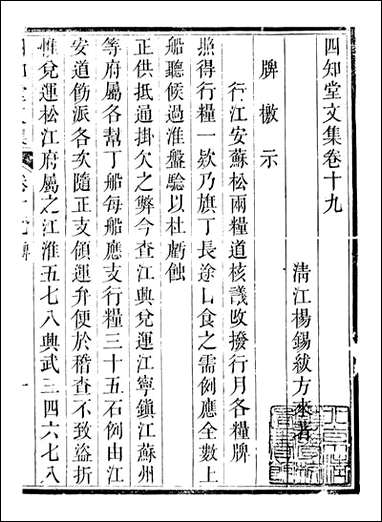 四知堂文集卷十九
清江楊錫紱方來著
牌檄示
行江安蘇松兩糧道核議收撥行月各糧牌
照得行糧一欵乃旗丁長途口食之需例應全數上
船聽候過淮盤驗以杜虧蝕
正供抵通掛欠之弊今查江興兌運江寧鎮江蘇州
等府屬各幫丁船每船應支行糧三十五石例由江
安道傭派各次隨正支領運弁便於稽查不致盜折
惟兌運松江府屬之江淮五七八興武三四六七八